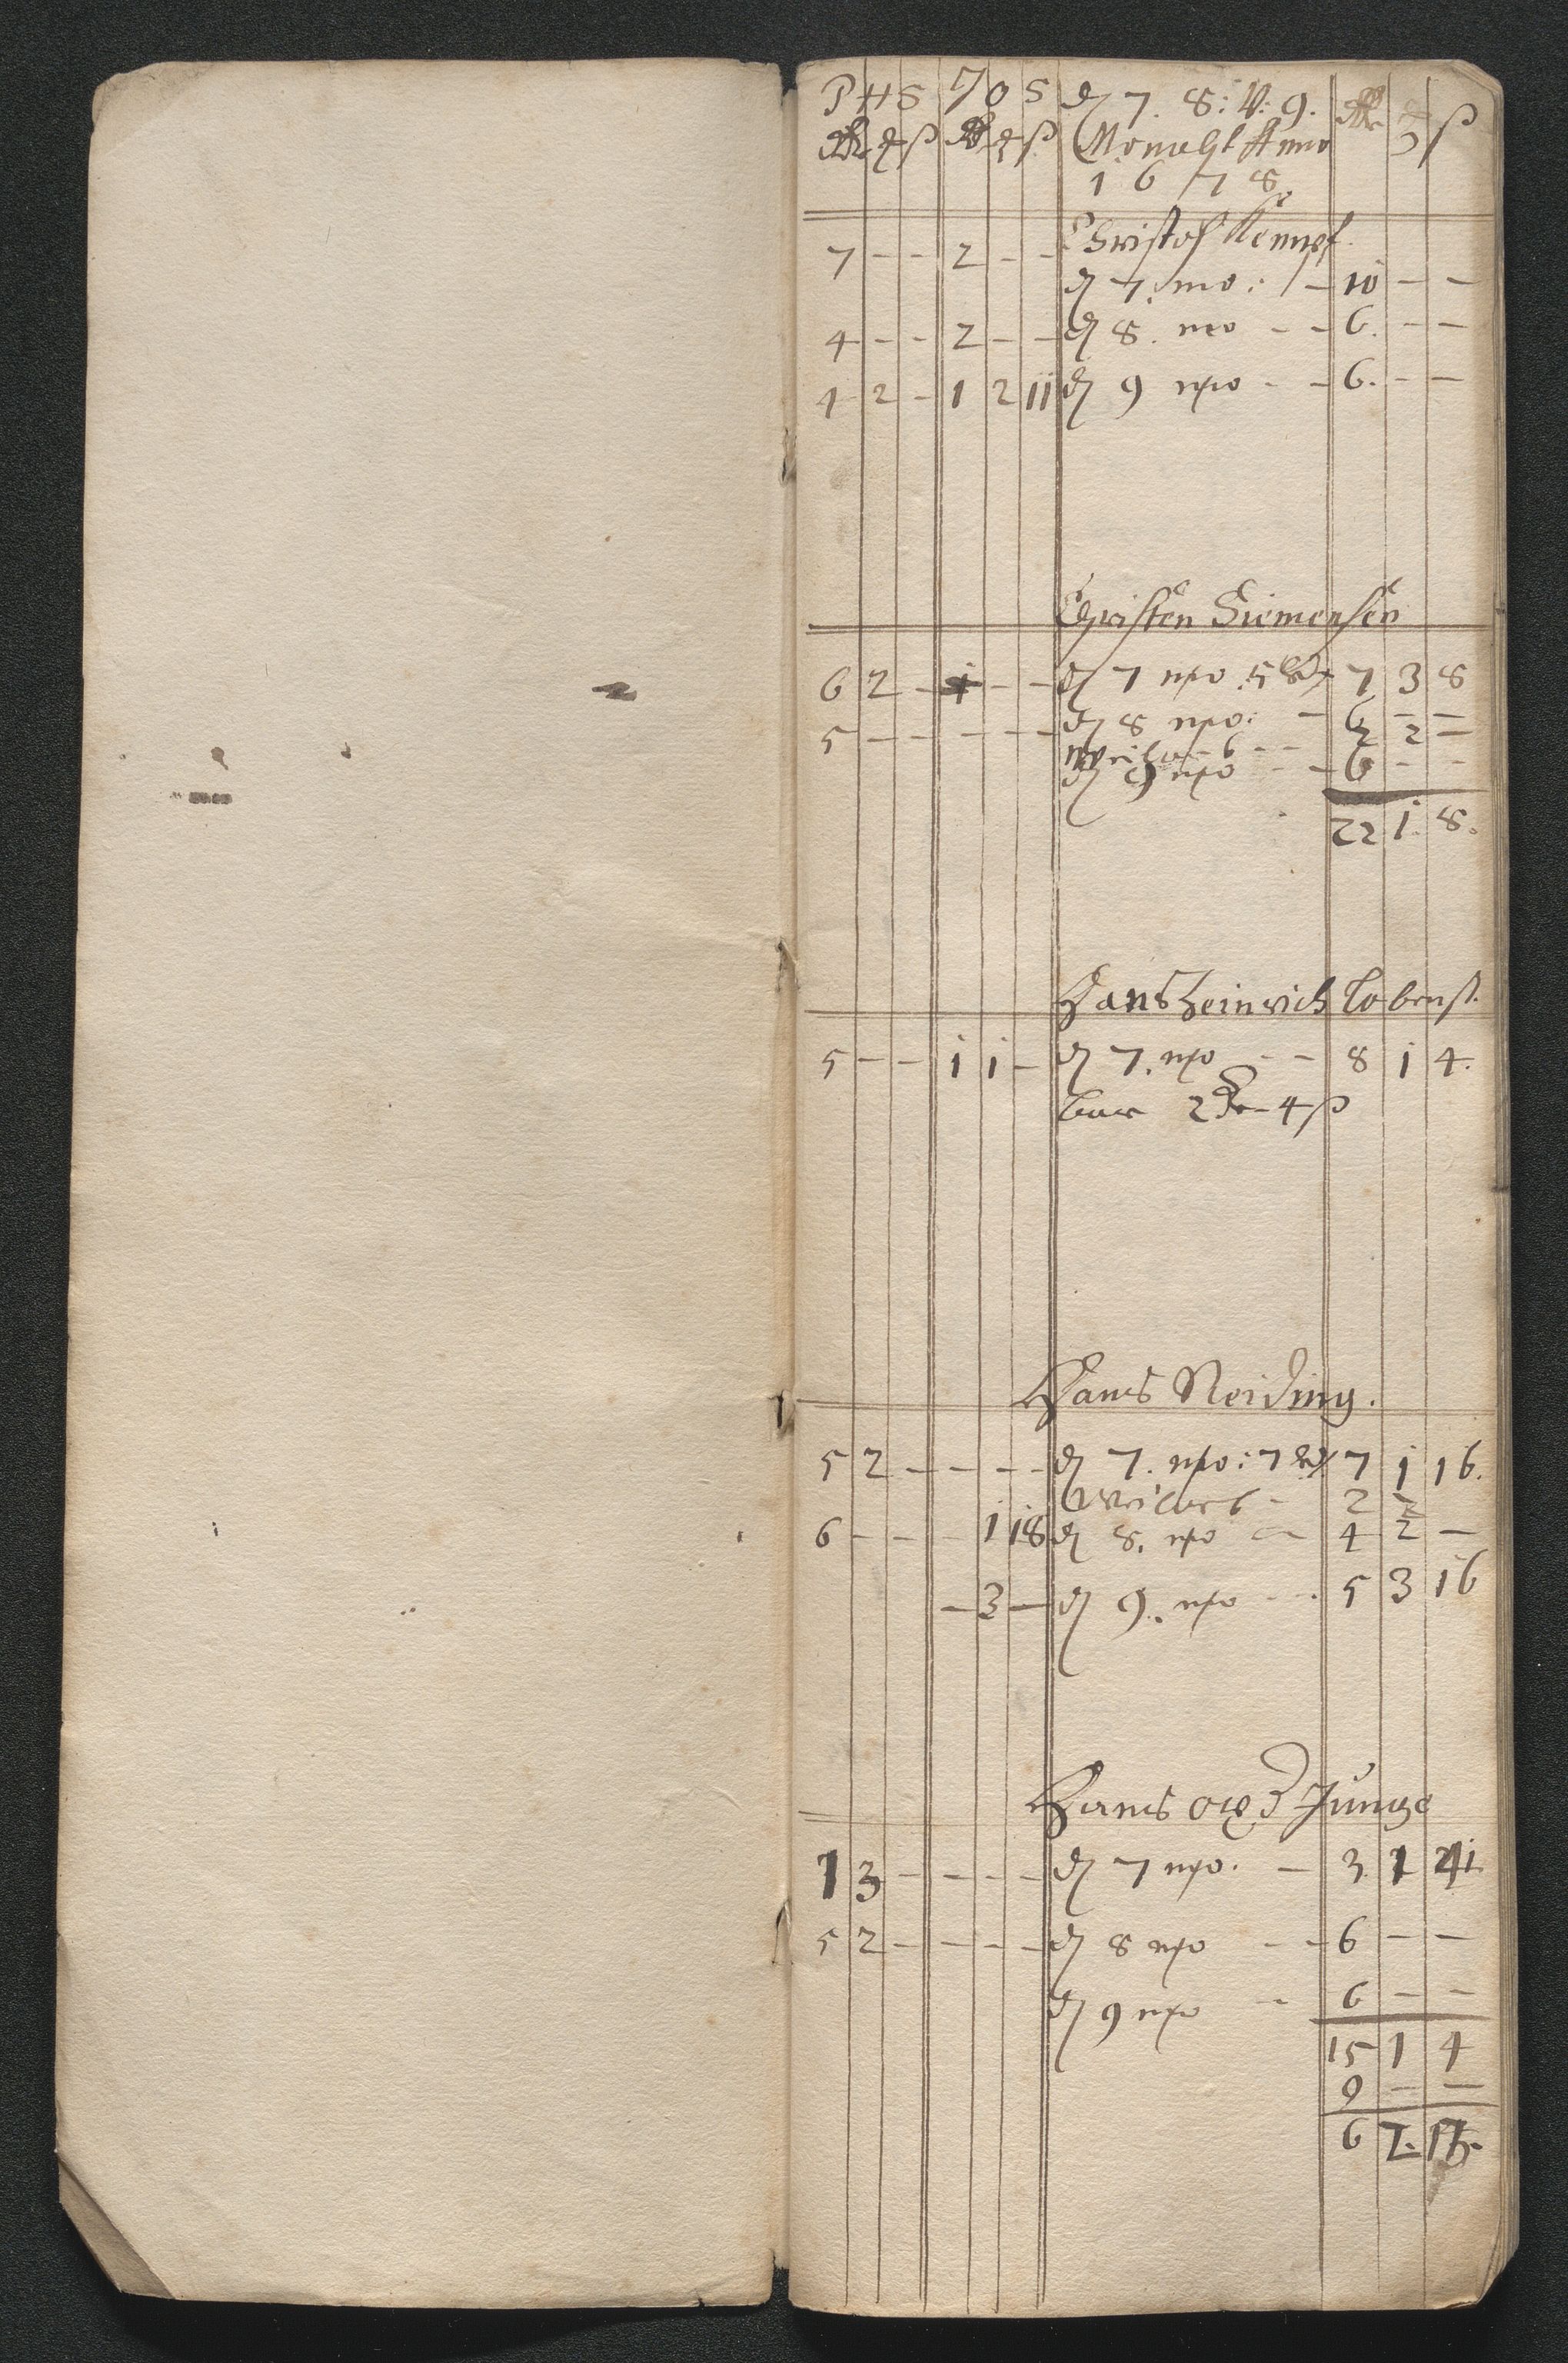 PHS JOS d 7. 8: V: 9.
Monaht Anno
1678
Christof Kempf.
7 - - 2 - - d 7. mo: - 10 - -
4 - - 2 - - d 8. mo - - 6. - -
4 2 - 1 2 11 d 9 mo - - 6. - -
Christen Siemensen
6 2 - 1 - - d 7 mo 5 7 3 8
5 - - - - - d 8 mo: - 6 - -
6 - - 2 2 -
d 9 mo - - 6 - -
22 1. 8.
Hans Heinrich Lobenst.
5 - - 1 1 - d 7. mo - - 8 1 4.
2 - 4 ß
Hans Neiding.
5 2 - - - - d 7. mo: 7 7 1 16.
6 - 2
6 - - - 1 18 d 8. mo - 4 2 -
- 3 - d 9. mo - - 5 3 16
Hans Junge
1 3 - - - - d 7 mo. - 3. 1
5 2 - - - - d 8 mo - - 6 - -
d 9 mo - 6 - -
15 1 4
9 - -
6